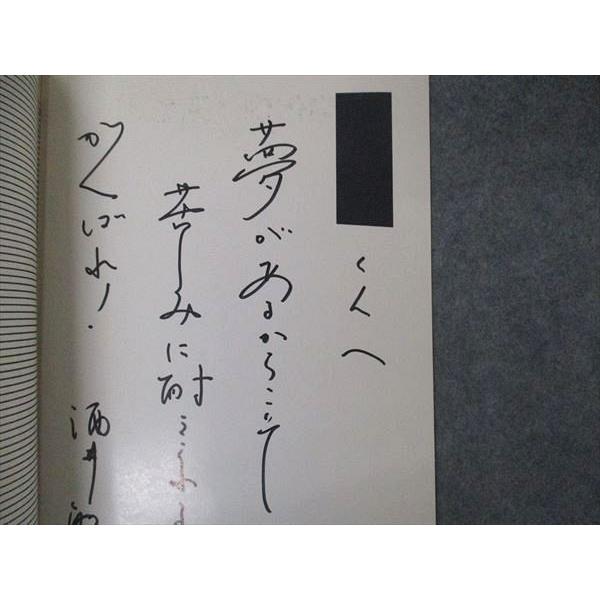 くんへ
夢があるからこそ
苦しみに耐えられる
がんばれ！ 酒井